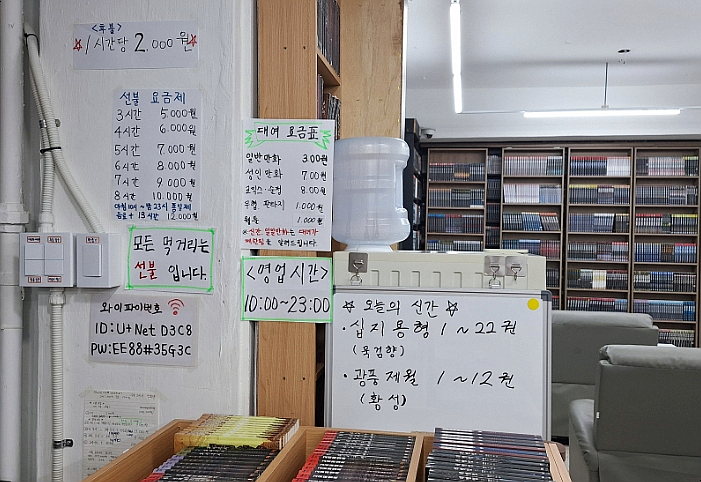 <후불>
☆1시간당 2.000원☆
선불 요금제
3시간 5.000원
4시간 6.000원
5시간 7.000원
6시간 8.000원
7시간 9.000원
8시간 10.000원
12.000원
모든 먹거리는
선불 입니다.
와이파이번호
ID:U+Net D3C8
PW:EE88#35G3C
대여 요금표
일반만화 300원
성인만화 700원
코믹스·순정 800원
무협 판타지 1.000원
월툰 1.000원
※신간 일반만화는 대여가
<영업시간>
10:00~23:00
☆ 오늘의 신간 ☆
·십지용형 1~22권
(묵검향)
·광풍제월 1~12권
(황성)